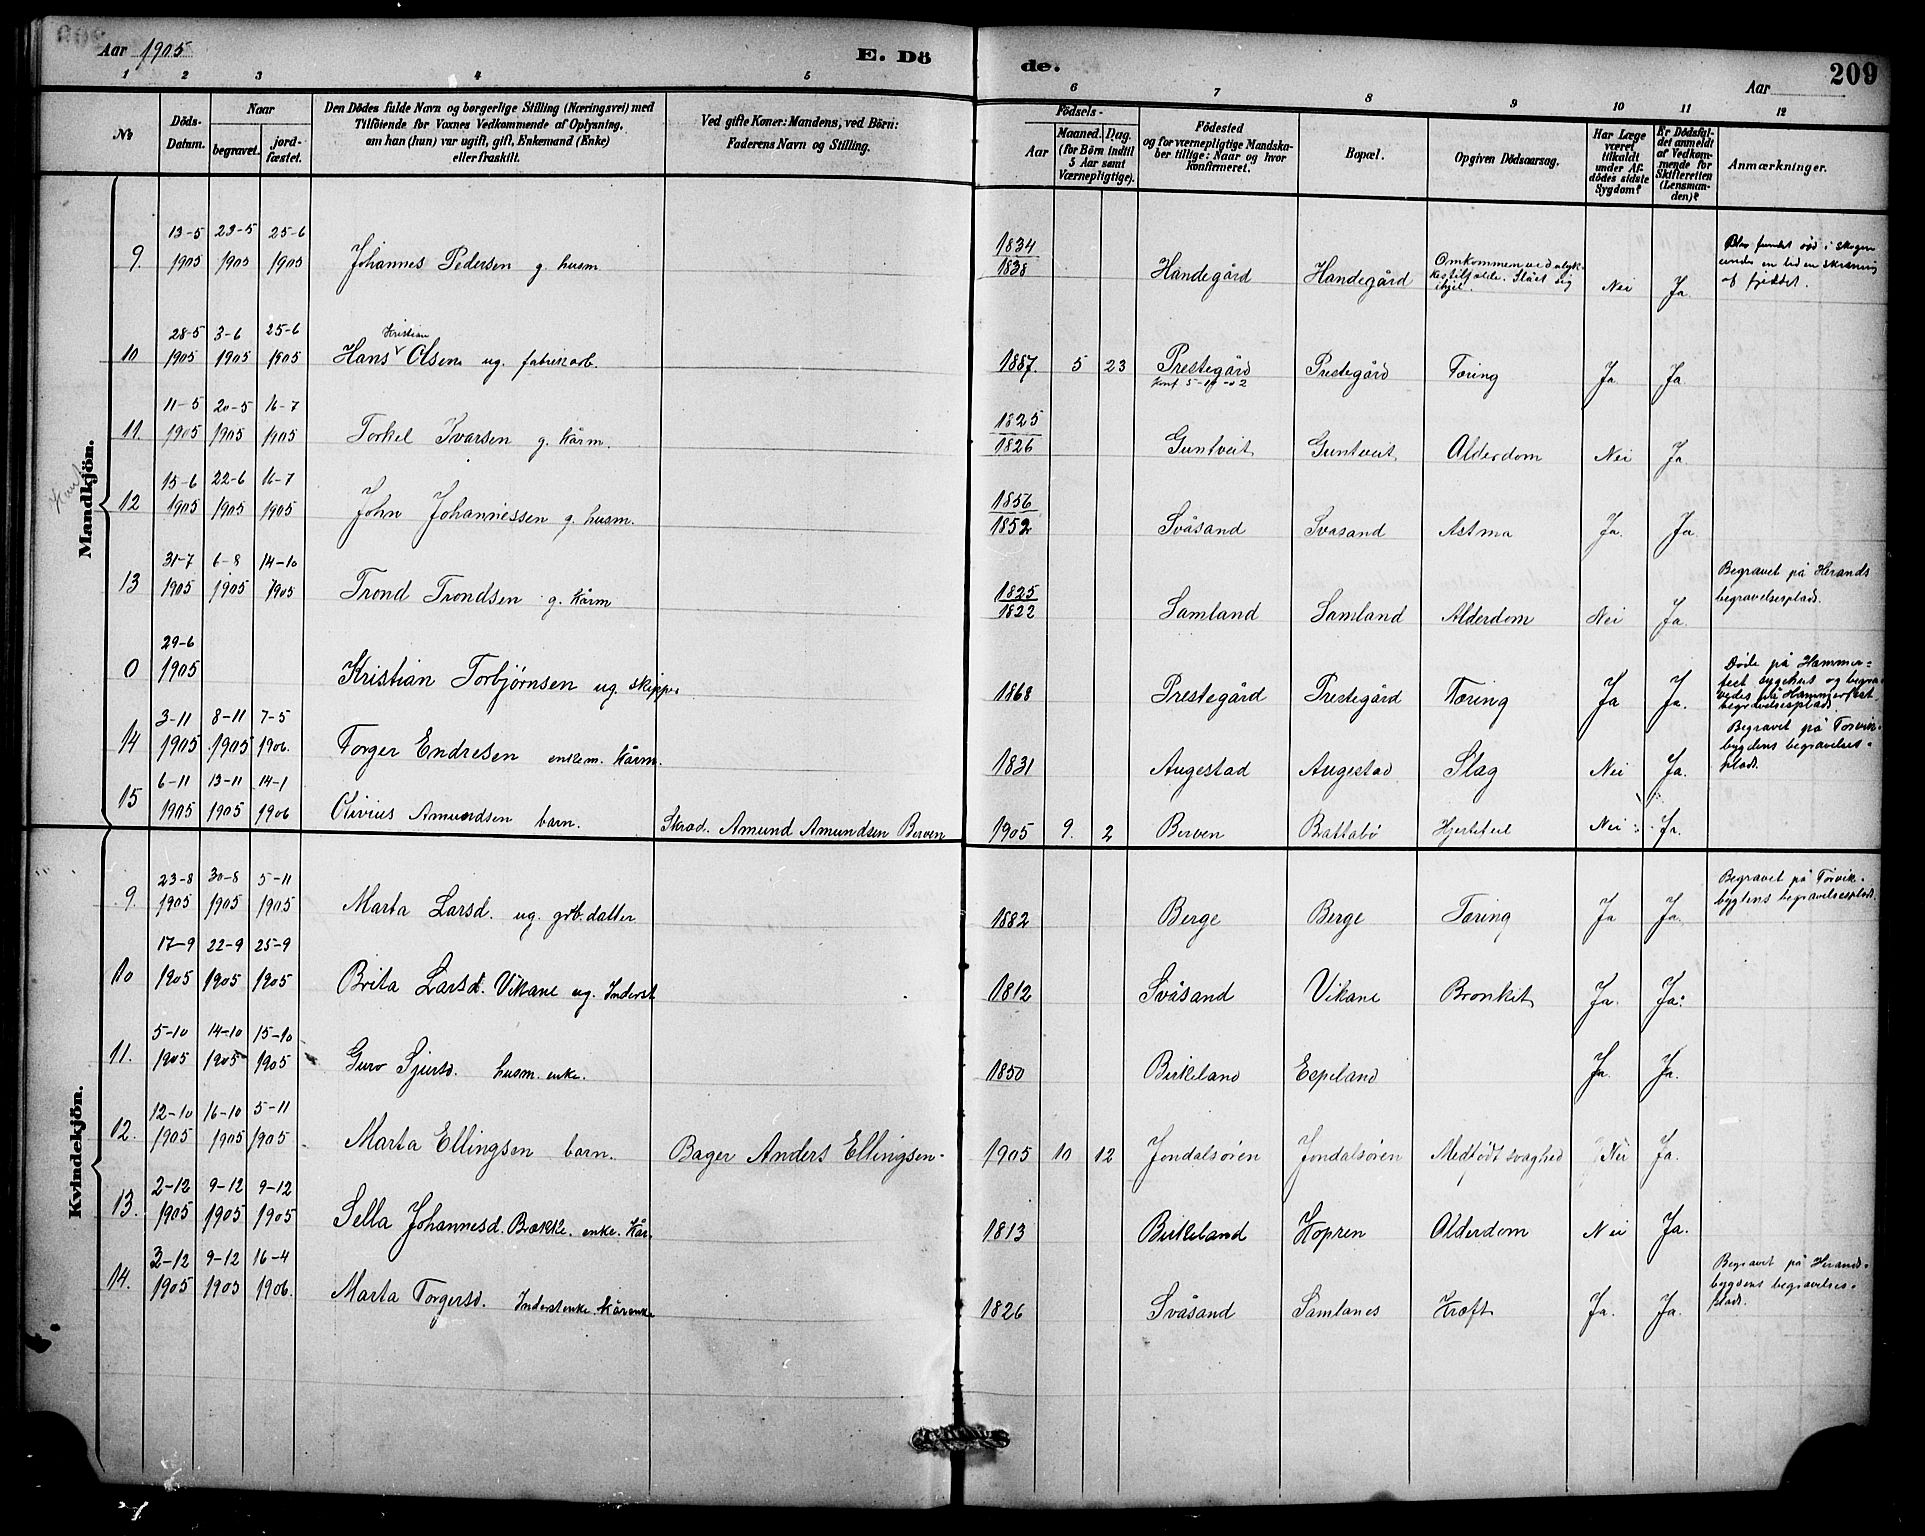 Aar 1905 E. Dö de. Aar 209
1 2 3 4 5 6 7 8 9 10 11 12
No Döds-Datum. Naar begravet. jordfæstet. Den Dödes fulde Navn og borgerlige Stilling (Næringsvei) med Tilföiende for Voxnes Vedkommende af Oplysning, om han (hun) var ugift, gift, Enkemand (Enke) eller fraskilt. Ved gifte Koner: Mandens, ved Börn: Faderens Navn og Stilling. Födsels- Aar Maaned. Dag. (for Börn indtil 5 Aar samt Værnepligtige). Födested og for værnepligtige Mandskaber tillige: Naar og hvor konfirmeret. Bopæl. Opgiven Dödsaarsag. Har Læge været tilkaldt under Afdödes sidste Sygdom? Er Dödsfaldet anmeldt af Vedkommende for Skifteretten (Lensmanden)? Anmærkninger.
Mandkjön.
9. 13-5 1905 23-5 1905 25-6 1905 Johannes Pedersen g. husm. 1834 1838 Handegård Handegård Omkommen ved ulykkestilfælde. Slået sig ihjel. Nei Ja Blev fundet död i skogen under en liden skråning af fjeldet.
10 28-5 1905 3-6 1905 25-6 1905 Hans Kristian Olsen ug. fabrikarb. 1887. 5 23 Prestegård Prestegård Tæring Ja Ja
11. 11-5 1905 20-5 1905 16-7 1905 Torkel Ivarsen g. kårm. 1825 1826 Guntveit Guntveit Alderdom Nei Ja
12 15-6 1905 22-6 1905 16-7 1905 John Johannessen g. husm. 1856 1852 Svåsand Svåsand Astma Ja. Ja
13 31-7 1905 6-8 1905 14-10 1905 Trond Trondsen g. kårm 1825 1822 Samland Samland Alderdom Nei Ja. Begravet på Herands begravelsesplads.
0 29-6 1905 Kristian Torbjørnsen ug skipper 1868 Prestegård Prestegård Tæring Ja Ja. Døde på Hammerfest sygehus og begravedes på Hammerfest begravelsesplads.
14 3-11 1905 8-11 1905 7-5 1906. Torger Endresen enkem. kårm. 1831 Augestad Augestad Slag Nei Ja. Begravet på Torvikbygdens begravelsesplads.
15 6-11 1905 13-11 1905 14-1 1906 Olivius Amundsen barn. Skræd. Amund Amundsen Berven 1905 9. 2 Berven Battabø Hjertefeil Nei Ja.
Kvindekjön.
9. 23-8 1905 30-8 1905 5-11 1905 Marta Larsd. ug. grb. datter 1882 Berge Berge Tæring Ja Ja. Begravet på Torvikbygdens begravelsesplads.
10 17-9 1905 22-9 1905 25-9 1905 Brita Larsd. Vikane ug. Inderst 1812 Svåsand Vikane Bronkit Ja. Ja.
11. 5-10 1905 14-10 1905 15-10 1905 Guro Sjursd. husm. enke. 1850 Birkeland Espeland Ja. Ja.
12. 12-10 1905 16-10 1905 5-11 1905 Marta Ellingsen barn. Bager Anders Ellingsen 1905 10 12 Jondalsøren Jondalsøren Medfødt svaghed Nei Ja.
13. 2-12 1905 9-12 1905 9-12 1905 Sella Johannesd. Bække. enke. Kår. 1813 Birkeland Kopren Alderdom Nei Ja.
14. 3-12 1905 9-12 1905 16-4 1906. Marta Torgersd. Inderstenke. Kårenke 1826 Svåsand Samlanes Kræft Ja. Ja. Begravet på Herandsbygdens begravelsesplads.